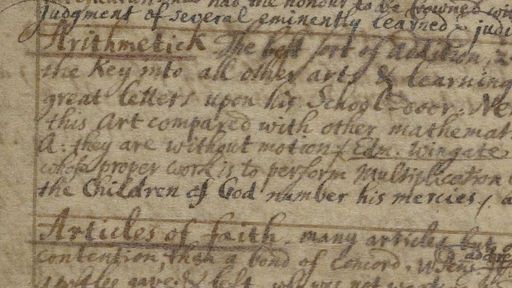 had me honour to be crowned with
Judgment of several eminently learned & judi
Arithmetick The best sort of Addition,
the Key into all other arts & learning
great letters upon his School-door. Ne
this Art compared with other mathemat
A. they are without motion Edm. Wingate
whose proper work is to perform Multiplication
the Children of God number his mercies,
Articles of faith. many articles
contention, than a bond of Concord.
Apostles gave